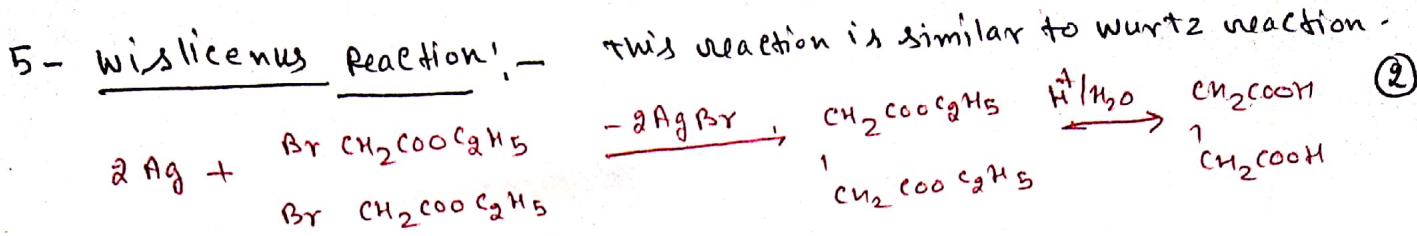 5- Wislicenus Reaction:- This reaction is similar to wurtz reaction.
2 Ag + Br CH2COOC2H5 -2AgBr CH2COOC2H5 H+/H2O CH2COOH ②
Br CH2COOC2H5 CH2COOC2H5 CH2COOH